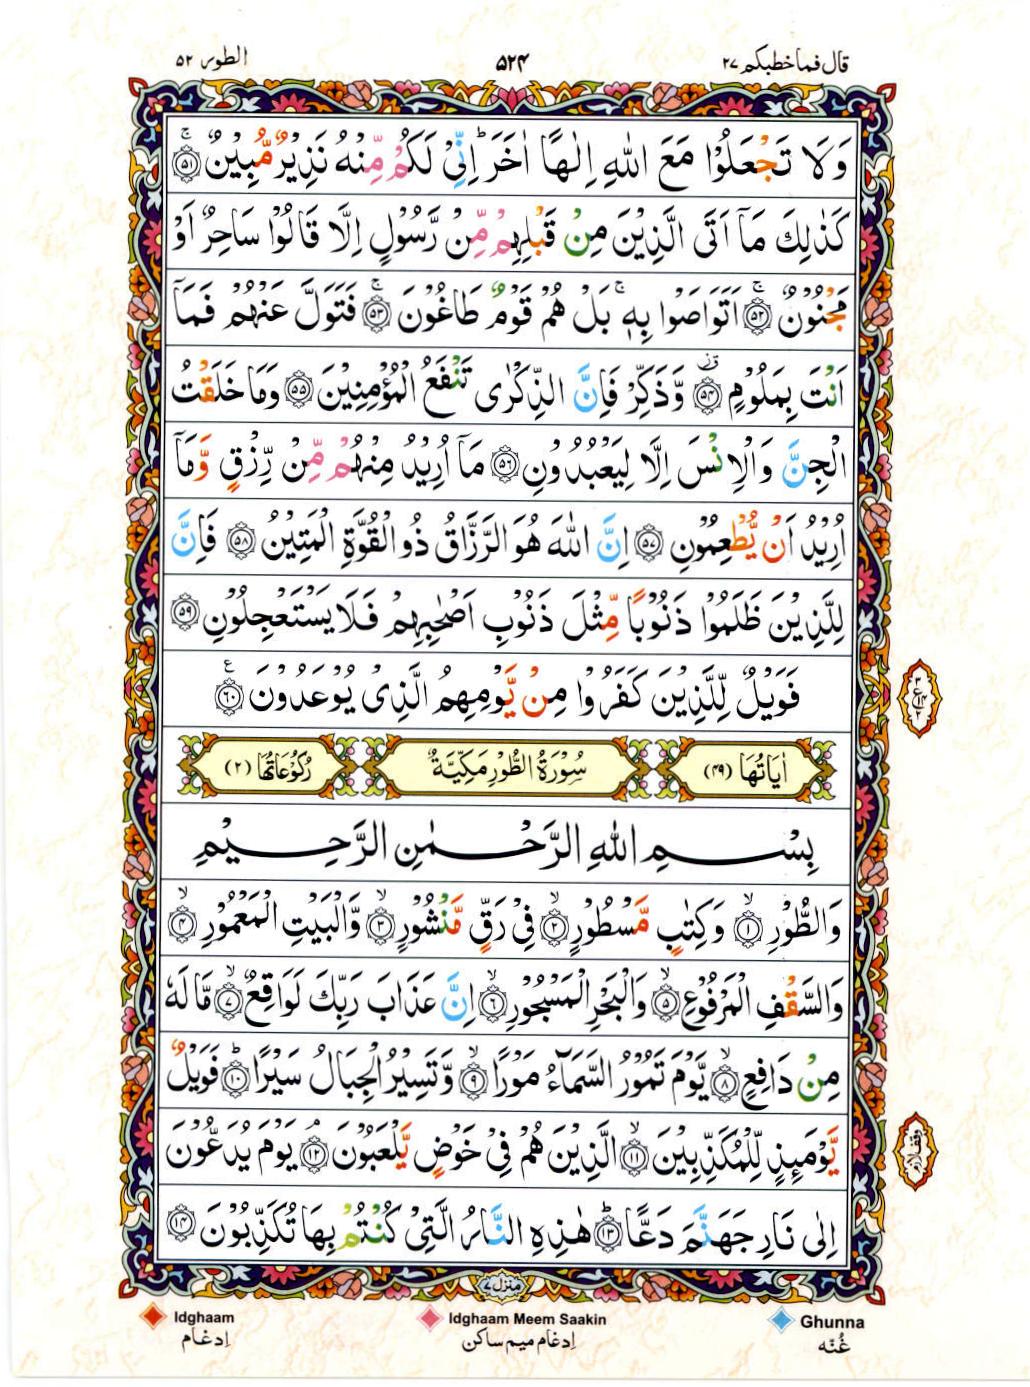 قال فماخطبکم ۲۷ ۵۲۴ الطور ۵۲
وَلَا تَجْعَلُوْا مَعَ اللّٰهِ اِلٰهًا اٰخَرَ ؕ اِنِّیْ لَکُمْ مِّنْهُ نَذِیْرٌ مُّبِیْنٌ ۚ ﴿۵۱﴾
کَذٰلِكَ مَاۤ اَتَی الَّذِیْنَ مِنْ قَبْلِهِمْ مِّنْ رَّسُوْلٍ اِلَّا قَالُوْا سَاحِرٌ اَوْ
مَجْنُوْنٌ ۚ ﴿۵۲﴾ اَتَوَاصَوْا بِهٖ ۚ بَلْ هُمْ قَوْمٌ طَاغُوْنَ ۚ ﴿۵۳﴾ فَتَوَلَّ عَنْهُمْ فَمَاۤ
اَنْتَ بِمَلُوْمٍ ۗ ﴿۵۴﴾ وَّذَکِّرْ فَاِنَّ الذِّکْرٰی تَنْفَعُ الْمُؤْمِنِیْنَ ﴿۵۵﴾ وَمَا خَلَقْتُ
الْجِنَّ وَالْاِنْسَ اِلَّا لِیَعْبُدُوْنِ ﴿۵۶﴾ مَاۤ اُرِیْدُ مِنْهُمْ مِّنْ رِّزْقٍ وَّمَاۤ
اُرِیْدُ اَنْ یُّطْعِمُوْنِ ﴿۵۷﴾ اِنَّ اللّٰهَ هُوَ الرَّزَّاقُ ذُو الْقُوَّةِ الْمَتِیْنُ ﴿۵۸﴾ فَاِنَّ
لِلَّذِیْنَ ظَلَمُوْا ذَنُوْبًا مِّثْلَ ذَنُوْبِ اَصْحٰبِهِمْ فَلَا یَسْتَعْجِلُوْنِ ﴿۵۹﴾
فَوَیْلٌ لِّلَّذِیْنَ کَفَرُوْا مِنْ یَّوْمِهِمُ الَّذِیْ یُوْعَدُوْنَ ﴿۶۰﴾ ع
اٰیَاتُهَا (۴۹) سُوْرَةُ الطُّوْرِ مَکِّیَّةٌ رُکُوْعَاتُهَا (۲)
بِسْمِ اللّٰهِ الرَّحْمٰنِ الرَّحِیْمِ
وَالطُّوْرِ ۙ ﴿۱﴾ وَکِتٰبٍ مَّسْطُوْرٍ ۙ ﴿۲﴾ فِیْ رَقٍّ مَّنْشُوْرٍ ۙ ﴿۳﴾ وَّالْبَیْتِ الْمَعْمُوْرِ ۙ ﴿۴﴾
وَالسَّقْفِ الْمَرْفُوْعِ ۙ ﴿۵﴾ وَالْبَحْرِ الْمَسْجُوْرِ ۙ ﴿۶﴾ اِنَّ عَذَابَ رَبِّكَ لَوَاقِعٌ ۙ ﴿۷﴾ مَّا لَهٗ
مِنْ دَافِعٍ ۙ ﴿۸﴾ یَّوْمَ تَمُوْرُ السَّمَآءُ مَوْرًا ۙ ﴿۹﴾ وَّتَسِیْرُ الْجِبَالُ سَیْرًا ؕ ﴿۱۰﴾ فَوَیْلٌ
یَّوْمَئِذٍ لِّلْمُکَذِّبِیْنَ ۙ ﴿۱۱﴾ الَّذِیْنَ هُمْ فِیْ خَوْضٍ یَّلْعَبُوْنَ ۘ ﴿۱۲﴾ یَوْمَ یُدَعُّوْنَ
اِلٰی نَارِ جَهَنَّمَ دَعًّا ؕ ﴿۱۳﴾ هٰذِهِ النَّارُ الَّتِیْ کُنْتُمْ بِهَا تُکَذِّبُوْنَ ﴿۱۴﴾
منزل ۷
Idghaam Idghaam Meem Saakin Ghunna
اِدغام اِدغام میم ساکن غُنّه